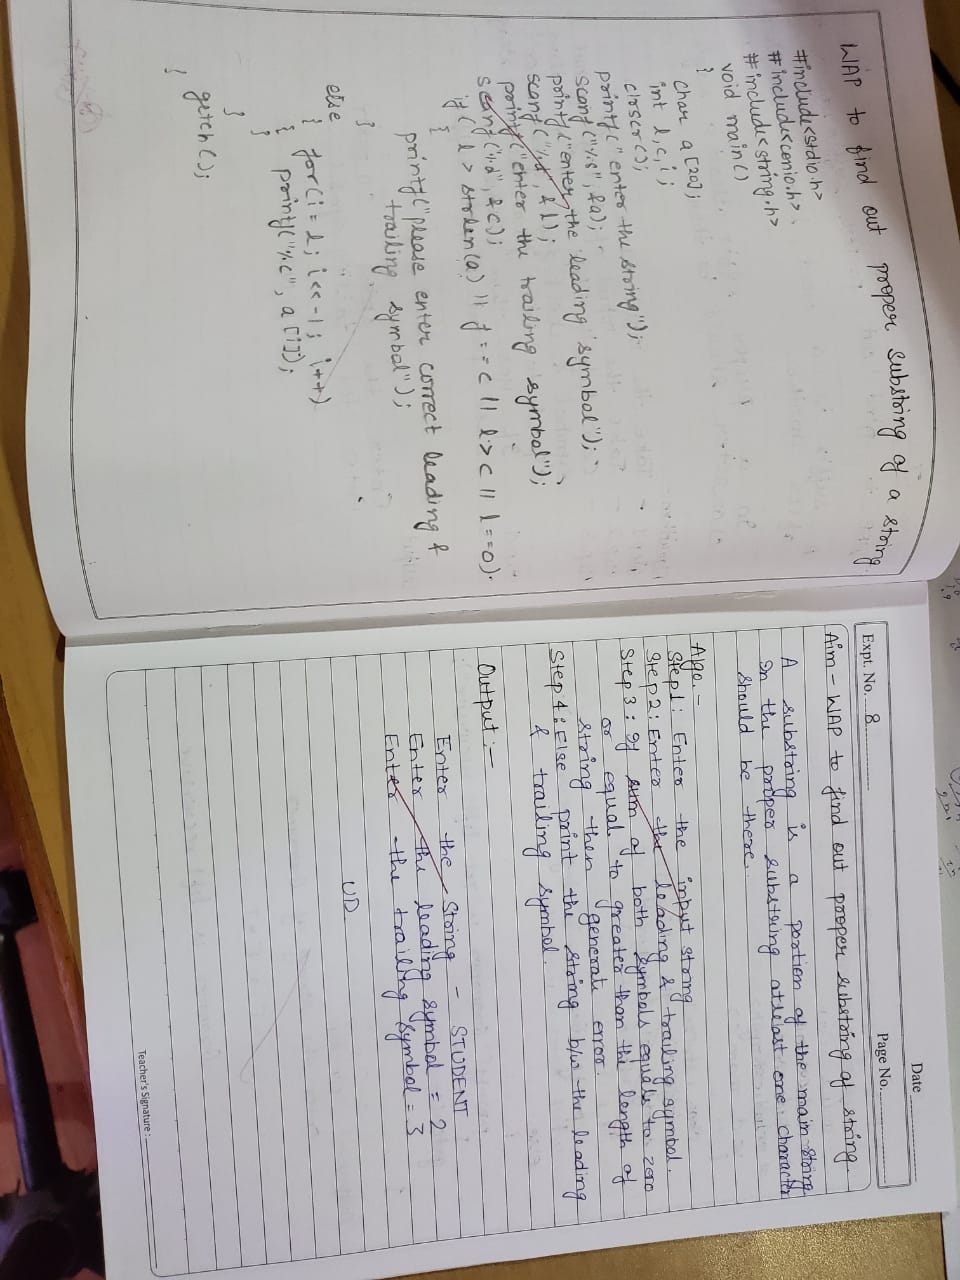 WAP to find out proper substring of a string
#include<stdio.h>
#include<conio.h>
#include<string.h>
void main()
}
char a[20];
int l,c,i;
clrscr();
printf("enter the string");
scanf("%s",&a);
printf("enter the leading symbol");
scanf("%d",&l);
printf("enter the trailing symbol");
scanf("%d",&c);
if(l>strlen(a) || f==c || l>c || l==0)
{
printf("please enter correct leading &
trailing symbol");
}
else
{ for(i=l; i<<-1; i++)
{ printf("%c", a[i]);
}
}
getch();
}
Date
Expt. No. 8
Page No.
Aim - WAP to find out proper substring of string.
A substring is a portion of the main string
In the proper substring atleast one character
should be there.
Algo. -
Step 1: Enter the input string
Step 2: Enter the leading & trailing symbol.
Step 3: If sum of both symbols equals to zero
or equal to greater than the length of
string then generate error.
Step 4: Else print the string b/w the leading
& trailing symbol.
Output :-
Enter the String - STUDENT
Enter the leading symbol = 2
Enter the trailing symbol = 3
UD
Teacher's Signature :